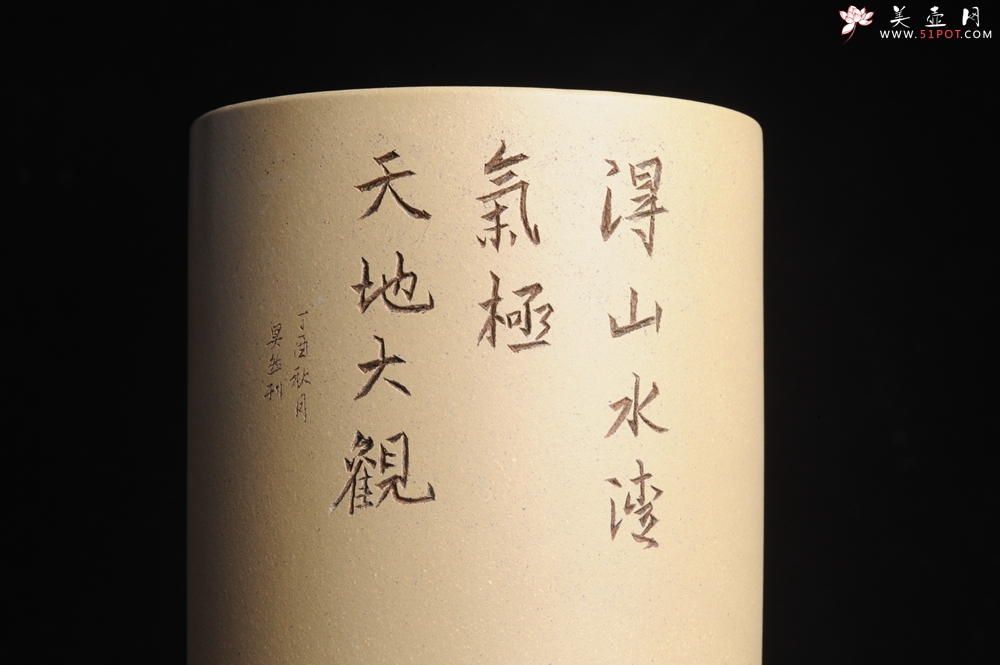 淂山水清
氣極
天地大觀
丁酉秋月
昊然刊
美壶网
WWW.51POT.COM